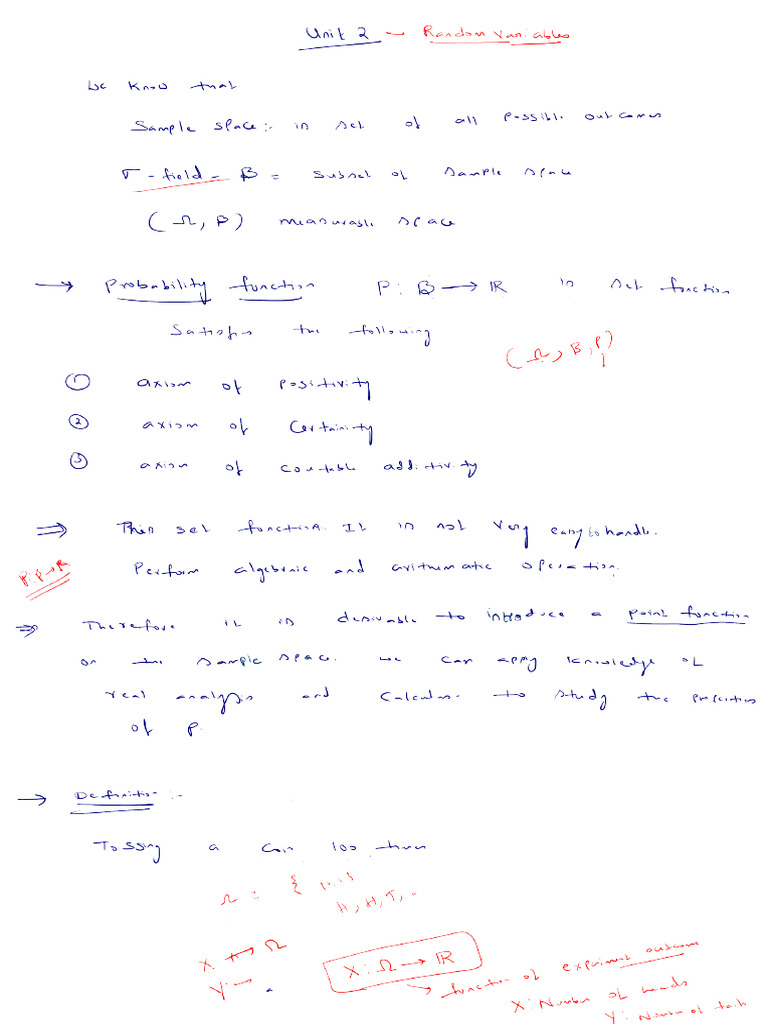 Unit 2 - Random Variables
We know that
Sample space:- is set of all possible outcomes
σ-field - B = subset of sample space
(Ω, B) measurable space
→ Probability function P : B → IR is set function
Satisfies the following
(Ω, B, P)
① axiom of positivity
② axiom of Certainity
③ axiom of countable additivity
⇒ This set function. It is not very easy to handle.
P: B→R
Perform algebraic and arithmatic operation.
⇒ Therefore it is desirable to introduce a point function
on the sample space. We can apply knowledge of
real analysis and Calculus to study the properties
of P.
→ Definition :-
Tossing a coin 100 times
Ω = {
H, H, T, ..
X → Ω
X : Ω → IR
Y →
→ function of experiment outcome
X : Number of heads
Y : Number of tails